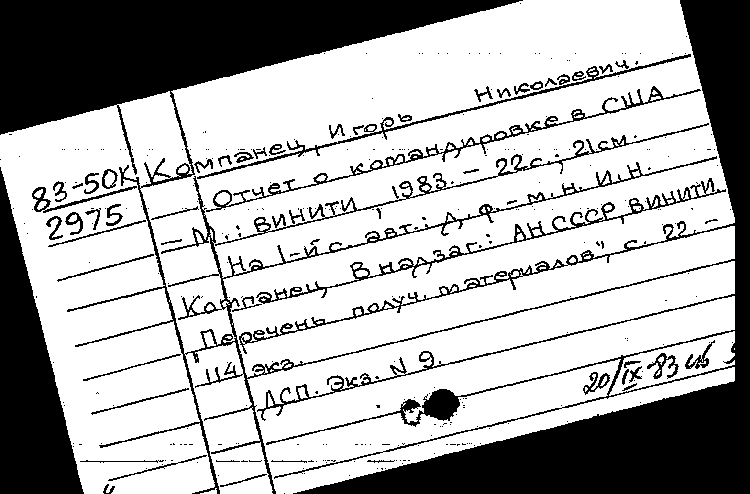 83-50К Компанец, Игорь Николаевич.
2975 Отчет о командировке в США.
— М.: ВИНИТИ, 1983. — 22 с.; 21 см.
На 1-й с. авт.: д. ф.-м. н. И. Н.
Компанец. В надзаг.: АН СССР, ВИНИТИ.
"Перечень получ. материалов", с. 22. —
114 экз.
ДСП. Экз. N 9.
20/IX-83